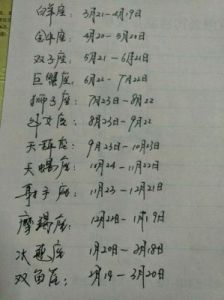 白羊座: 3月21-4月19日
金牛座: 4月20-5月20日
双子座: 5月21-6月21日
巨蟹座: 6月22-7月22日
狮子座: 7月23日-8月22
处女座: 8月23日-9月22
天秤座: 9月23日-10月23日
天蝎座: 10月24-11月22日
射手座: 11月23-12月21日
摩羯座: 12月22日-1月19日
水瓶座: 1月20日-2月18日
双鱼座: 2月19-3月20日